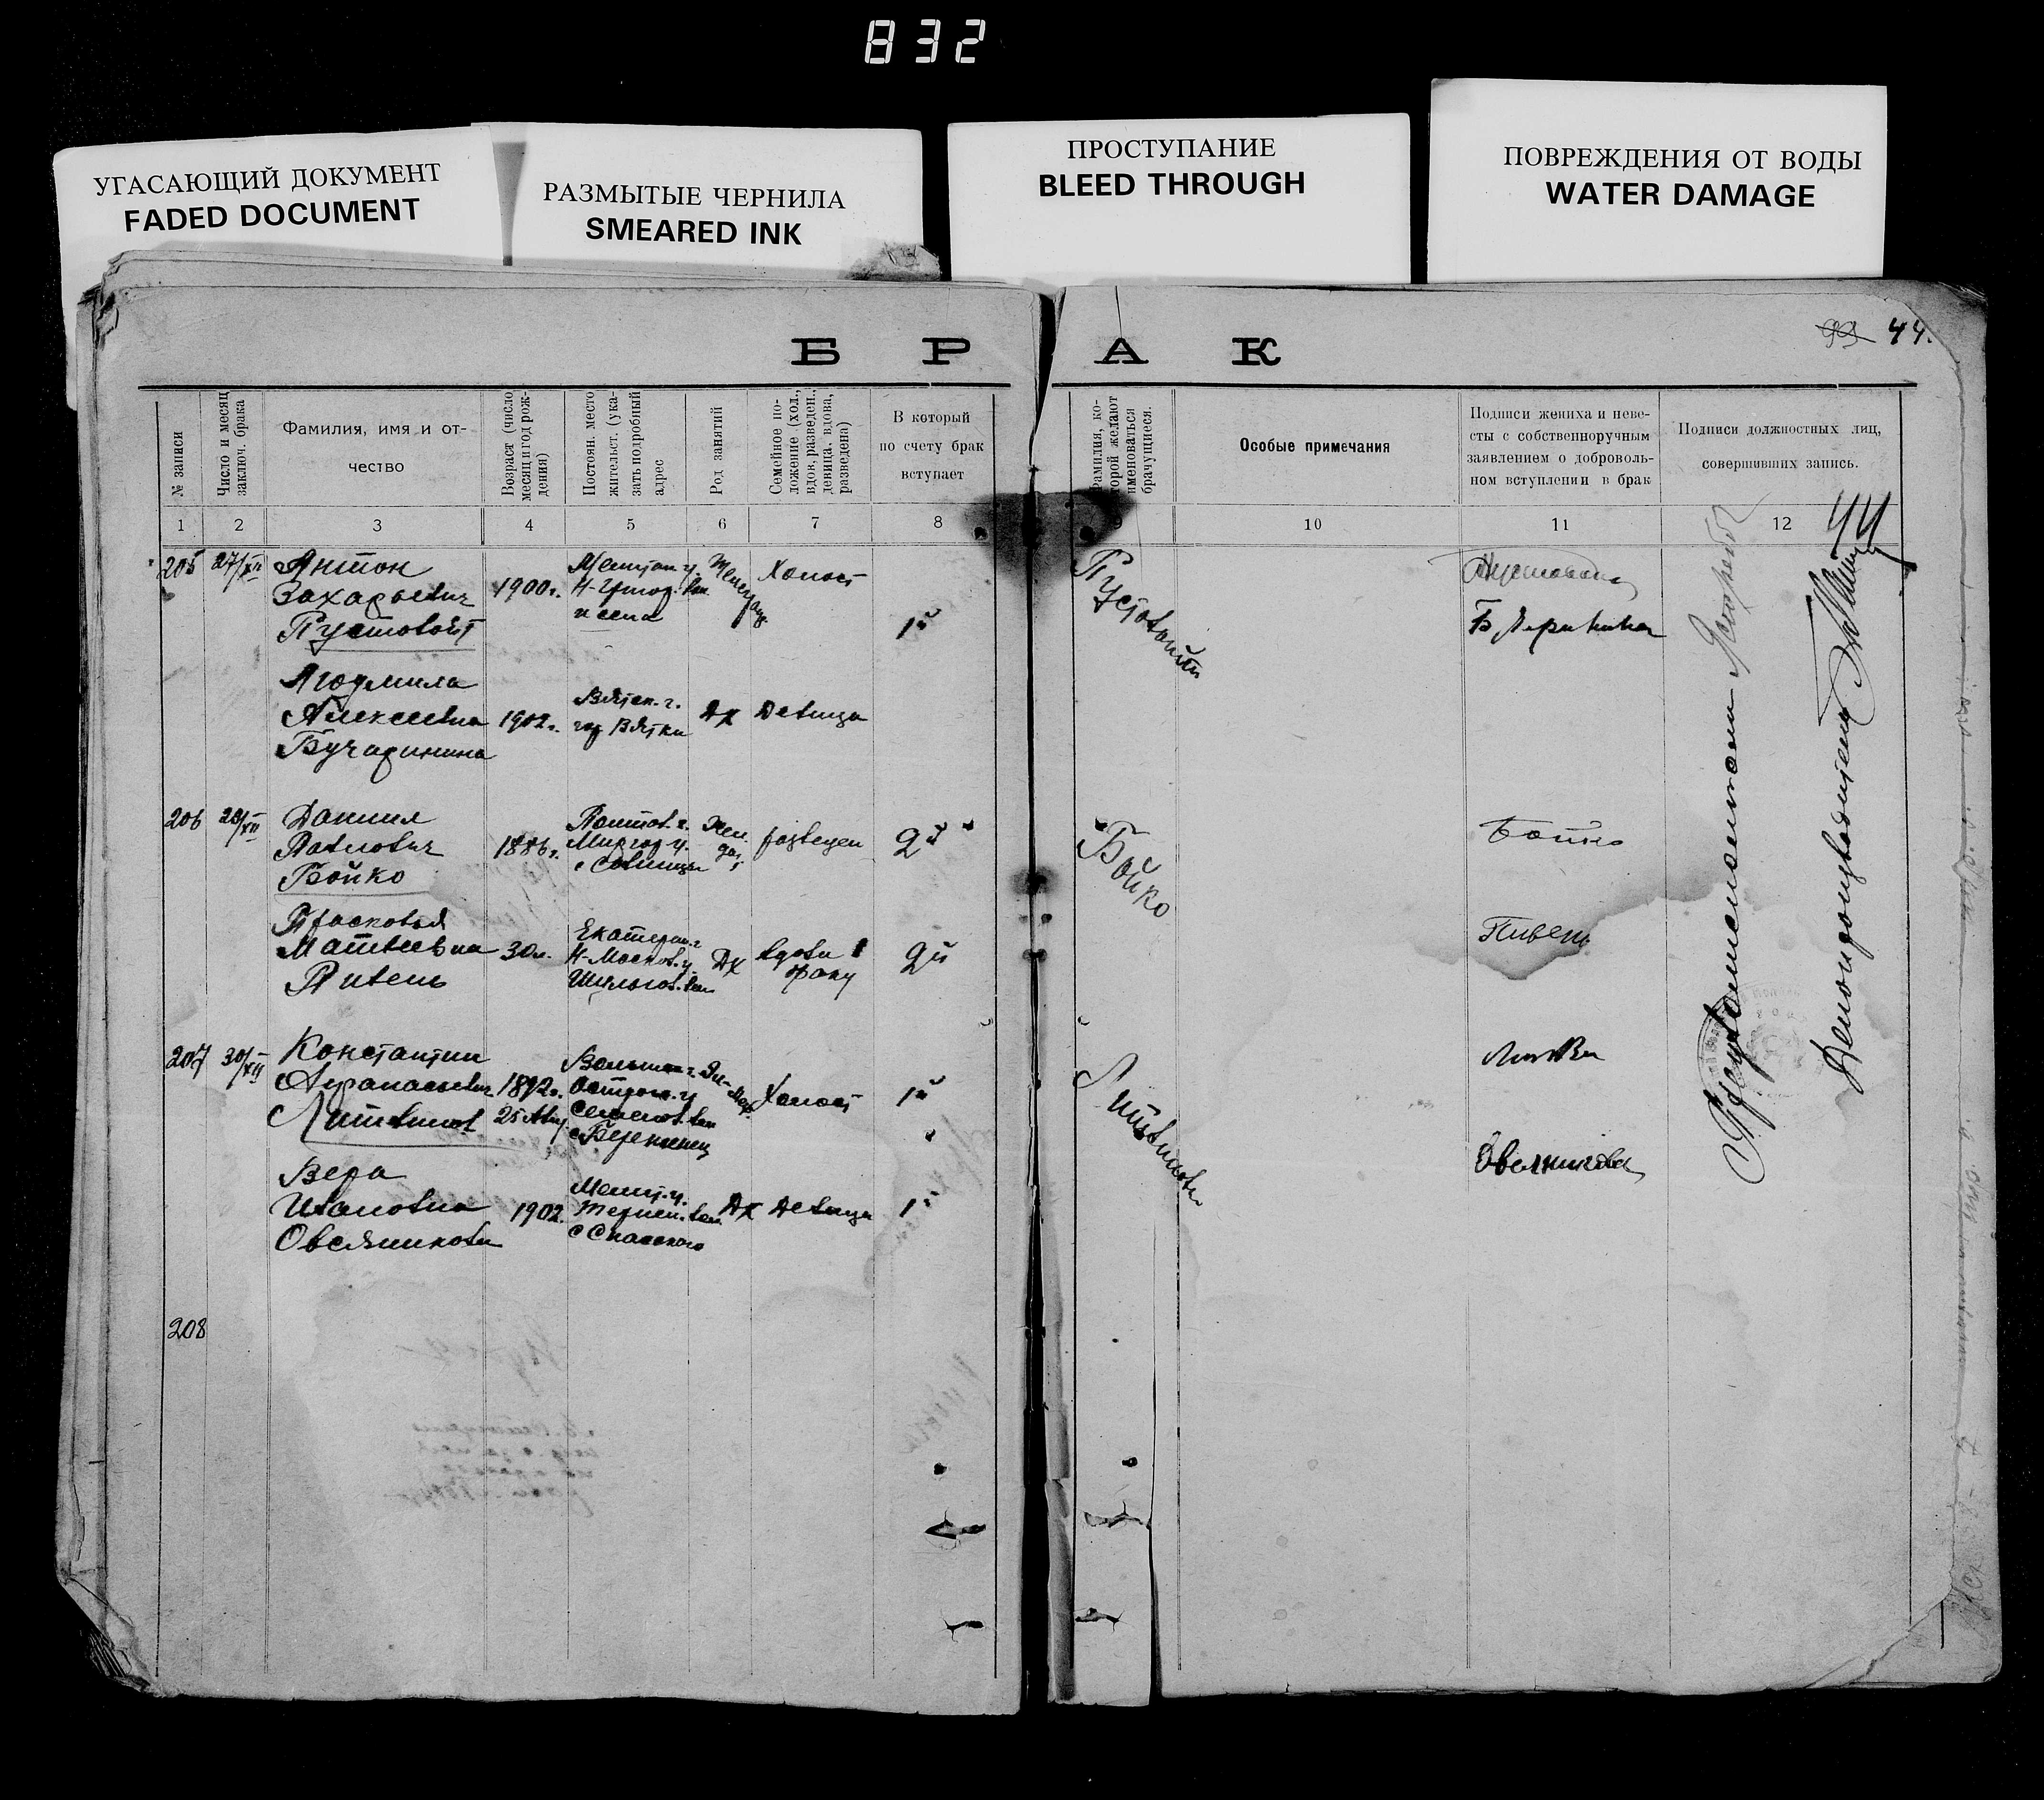 832
УГАСАЮЩИЙ ДОКУМЕНТ
FADED DOCUMENT
РАЗМЫТЫЕ ЧЕРНИЛА
SMEARED INK
ПРОСТУПАНИЕ
BLEED THROUGH
ПОВРЕЖДЕНИЯ ОТ ВОДЫ
WATER DAMAGE
БРАК
44.
№ записи
Число и месяц
заключ. брака
Фамилия, имя и от-
чество
Возраст (число,
месяц и год рож-
дения)
Постоян. место
жительст. (ука-
зать подробный
адрес
Род занятий
Семейное по-
ложение (хол.,
вдов, разведен.,
девица, вдова,
разведена)
В который
по счету брак
вступает
Фамилия, ко-
торой желают
именоваться
брачущиеся.
Особые примечания
Подписи жениха и неве-
сты с собственноручным
заявлением о доброволь-
ном вступлении в брак
Подписи должностных лиц,
совершивших запись.
1 2 3 4 5 6 7 8 9 10 11 12
44
205 27/XII
Антон
Захарьевич
Пустовойт
1900г.
Холост
1й
Пустовойт
Людмила
Алексеевна
Бучаринина
1902г.
Вятск. г.
гор Вятки
Дх
Девица
206 28/XII
Даниил
Павлович
Бойко
1886г.
Полтов. г.
Миргор. у.
с Савинцы
разведен
2й
Бойко
Бойко
Прасковья
Матвеевна
Пивень
30л.
Екатерин. г
Н-Москов. у.
Дх
вдова
2й
Пивень
207 30/XII
Константин
Афанасьевич
Литвинов
1892г.
25 Авг.
Волынск. г.
Острож. у
Холост
1й
Литвинов
Вера
Ивановна
Овсяникова
1902.
Мелит. у.
Терпен. вол.
с Спасского
Дх
Девица
1й
Овсяникова
208
Делопроизводитель